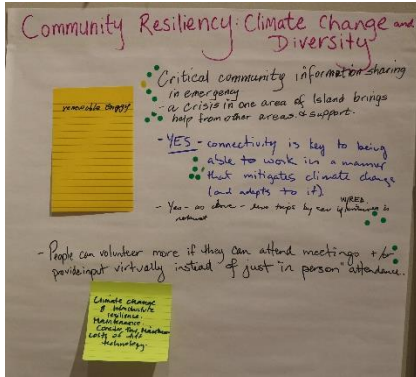 Community Resiliency: Climate Change and
Diversity
Critical community information sharing
in emergency
- a crisis in one area of Island brings
help from other areas & support.
renewable energy
- YES - connectivity is key to being
able to work in a manner
that mitigates climate change
(and adapts to it)
- Yes - as above - less trips by car if
WIRED
network
- People can volunteer more if they can attend meetings + /or
provide input virtually instead of just "in person" attendance.
Climate change
& infrastructure
resilience.
Maintenance.
Consider
costs of
technology.